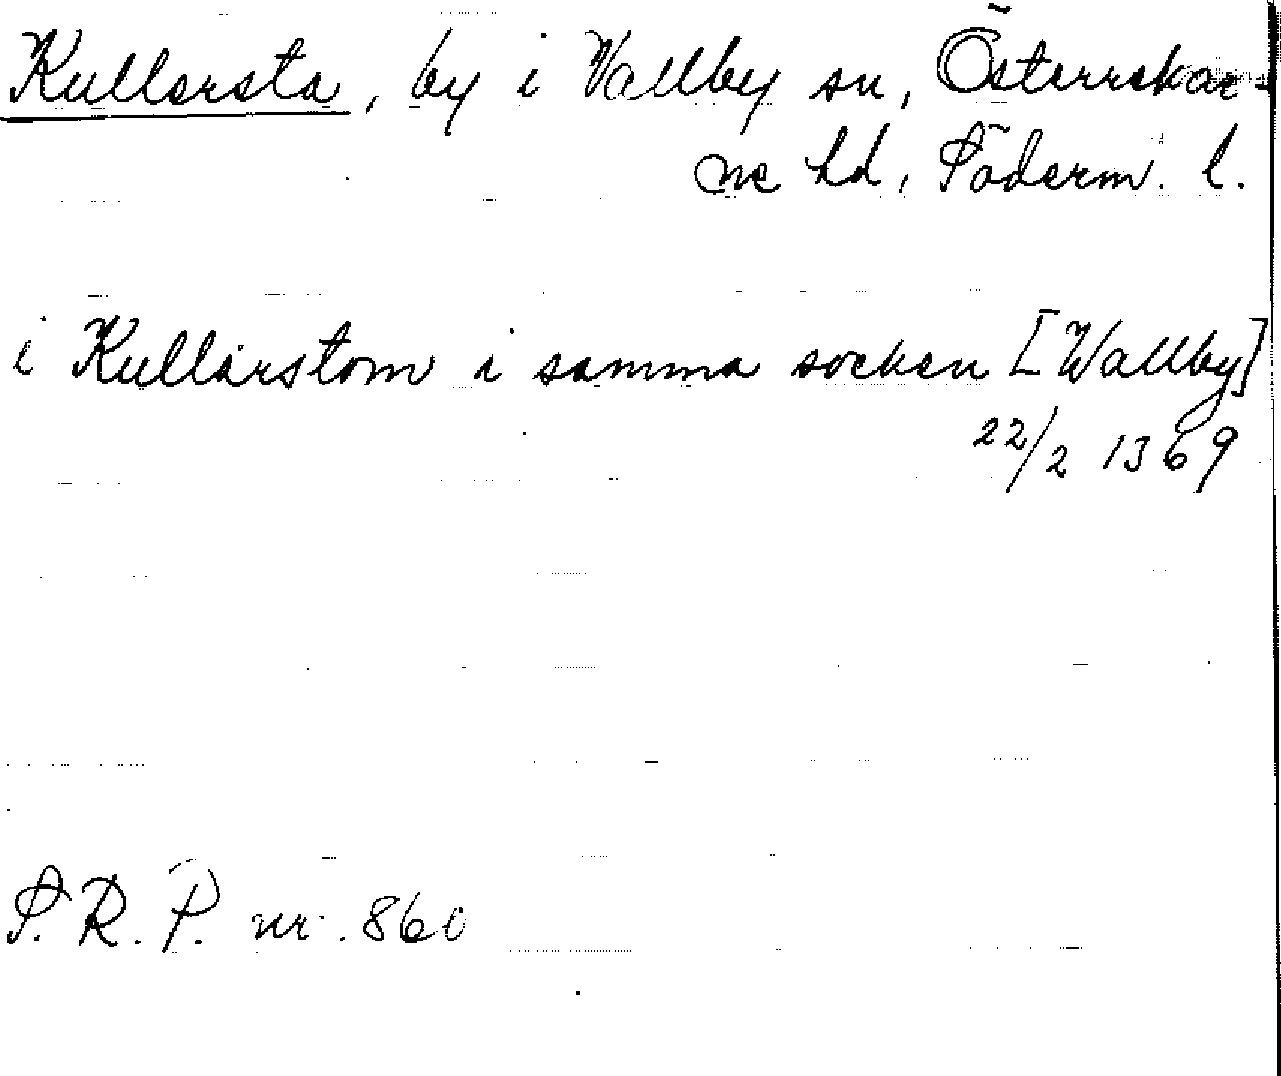 Kullersta, by i Vallby sn, Österrekar-
ne hd, Söderm. l.
i Kullärstom i samma socken [Wallby]
22/2 1369
S. R. P. nr. 860